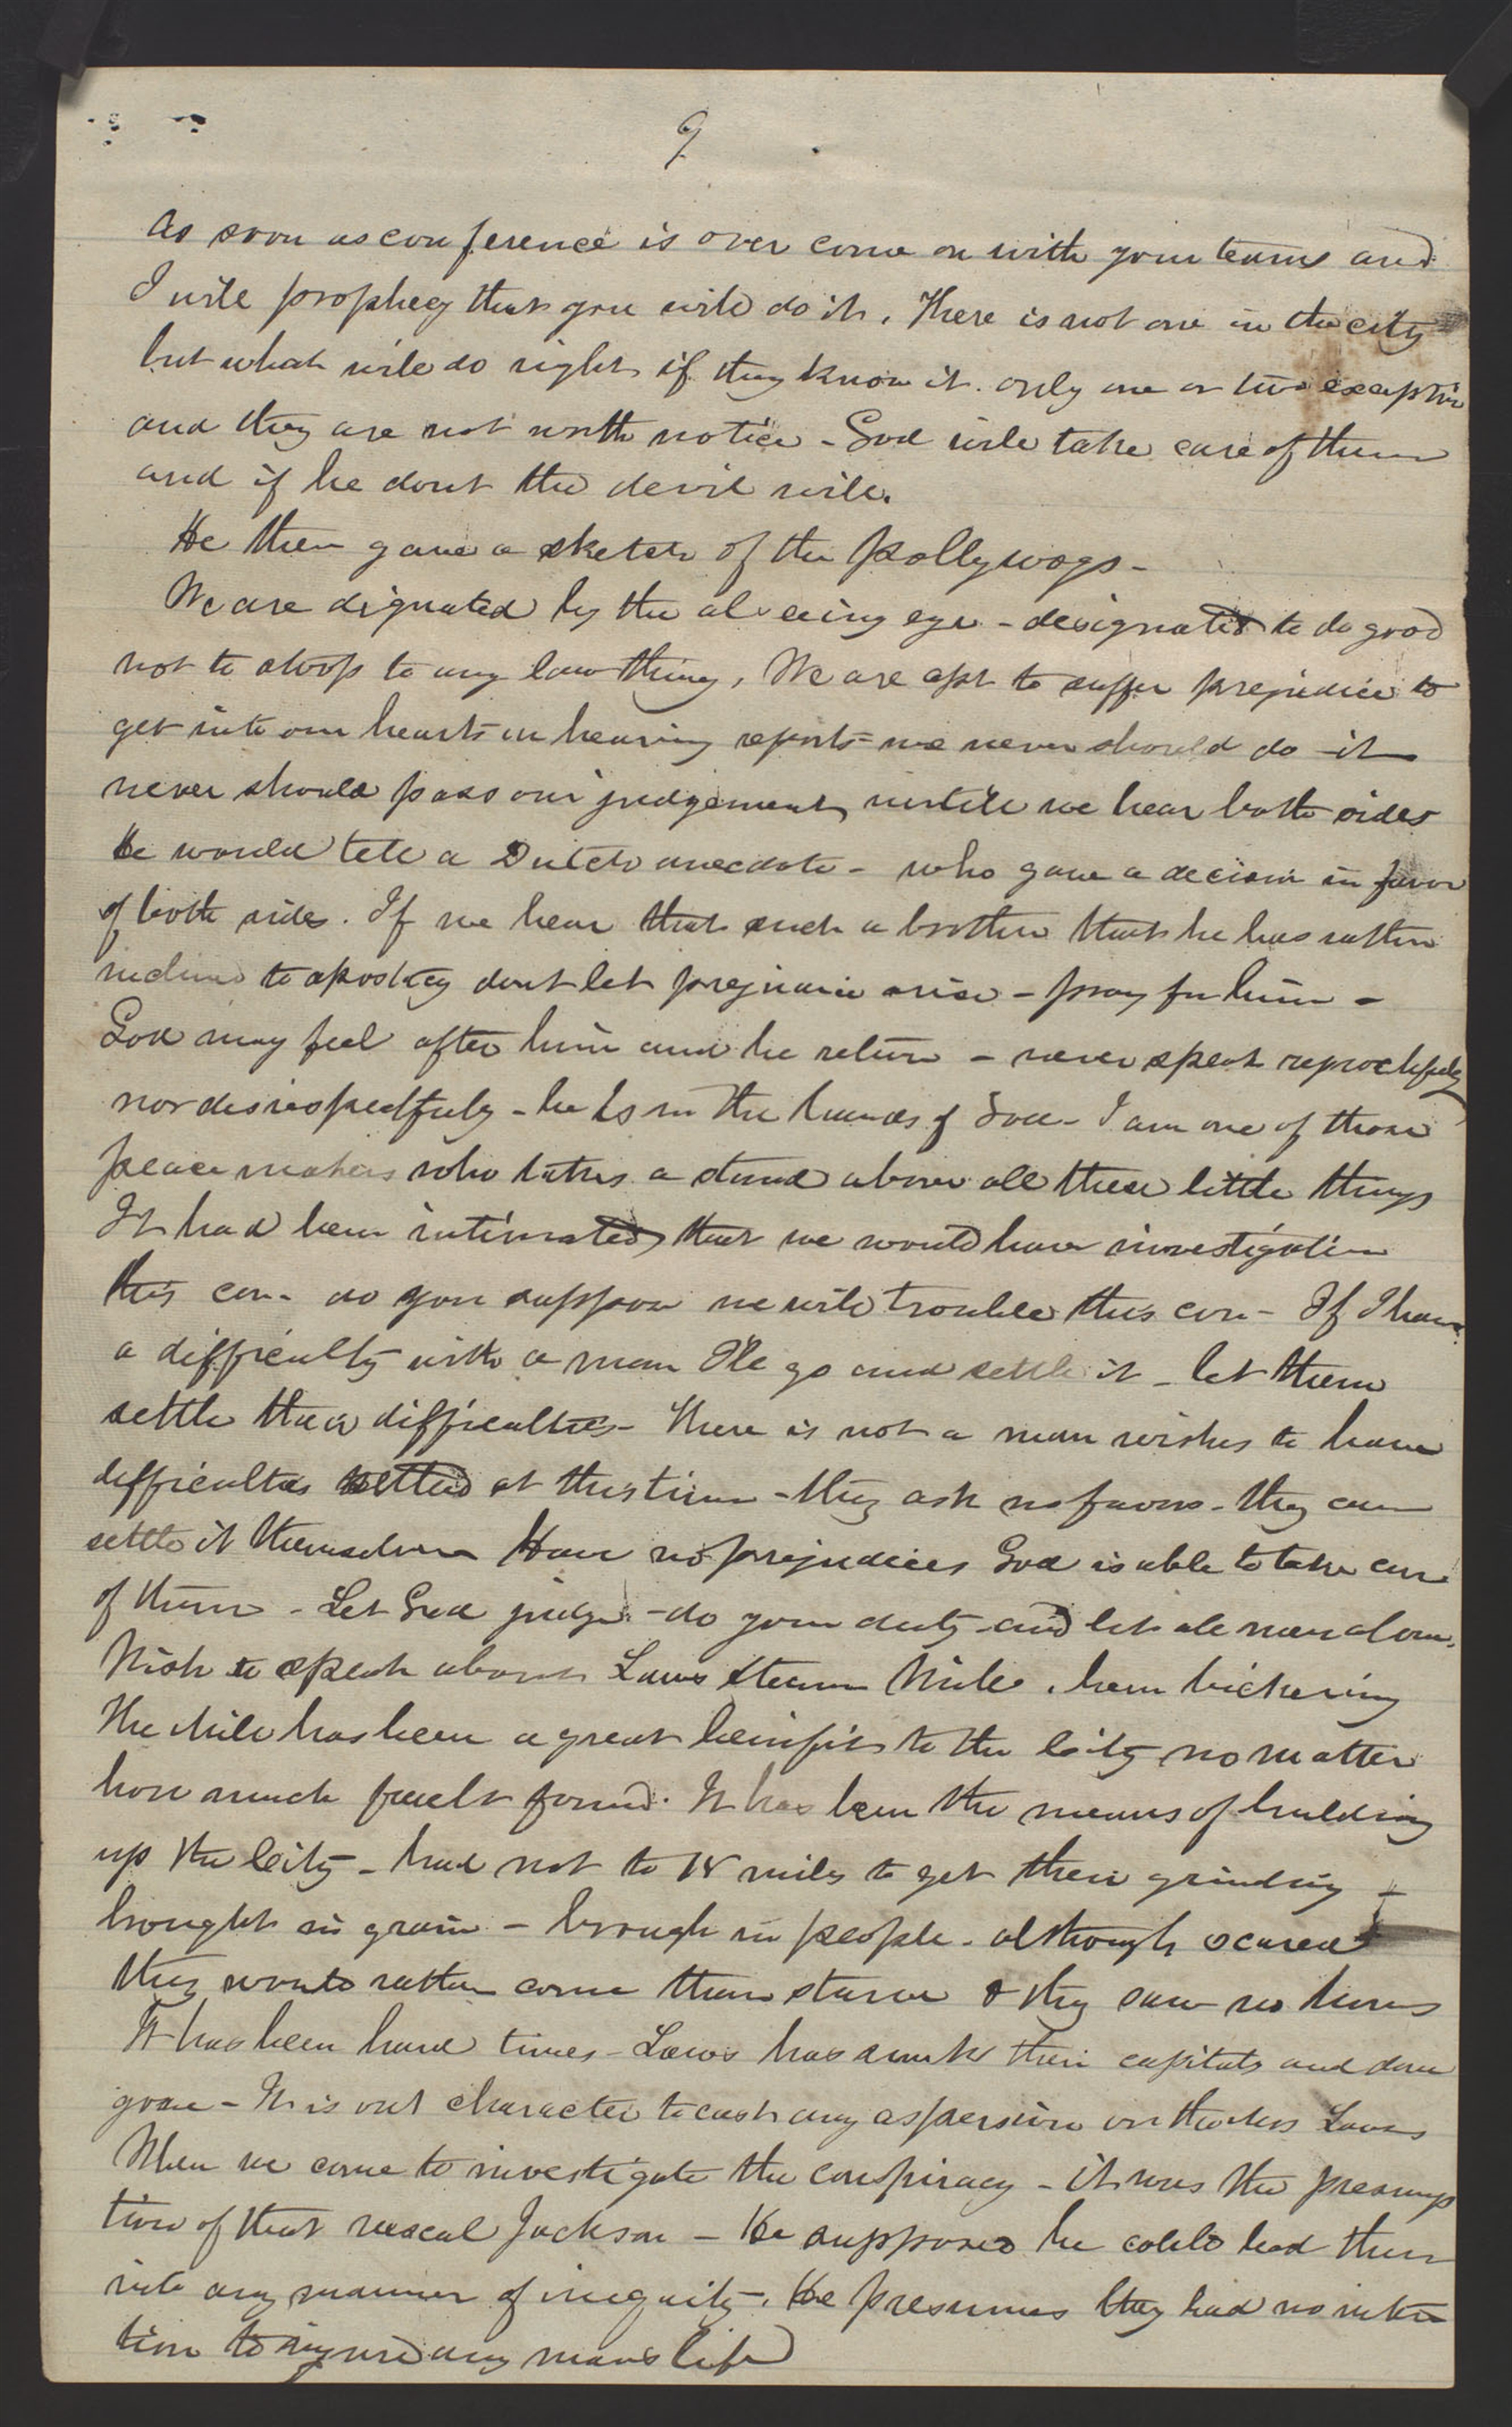 9
As soon as conference is over come on with your teams and
I will prophecy that you will do it. There is not one in the city
but what will do right if they know it. only one or two exceptin
and they are not worth notice - God will take care of them
and if he dont the devil will.
He then gave a sketch of the pollywogs -
We are dignated by the al seeing eye - designated to do good
not to stoop to any low thing, We are apt to suffer prejudice to
get into our hearts on hearing reports - we never should do it
never should pass our judgement untill we hear both sides
He would tell a Dutch anecdote - who gave a decision in favor
of both sides. If we hear that such a brother that he has rather
inclined to apostacy dont let prejudice arise - pray for him -
God may feel after him and he return - never speak reprochfully
nor disrespectfully - he is in the hands of God - I am one of those
peace makers who takes a stand above all these little things
It had been intimated that we would have investigation
this con - do you suppose we will trouble this con - If I have
a difficulty with a man I'll go and settle it - let them
settle their difficulties - there is not a man wishes to have
difficultes settled at this time - they ask no favors - they can
settle it themselves Have no prejudices God is able to take care
of them - Let God judge - do your duty and let all men alone.
Wish to speak about Laws steam Mill, been bickering
The Mill has been a great benifit to the City no matter
how much fault found. It has been the means of building
up the City - had not to 18 miles to get their grinding -
brought in grain - brough in people - although scared
they would rather come than starve & they saw no horns
It has been hard times - Laws has sunk their capitals and done
good - It is out character to cast any aspersion on the Mess Laws
When we come to investigate the conspiracy - it was the presump
tion of that rascal Jackson - He supposed he could lead them
into any manner of inequity. He presumes they had no inten
tion to injure any mans life